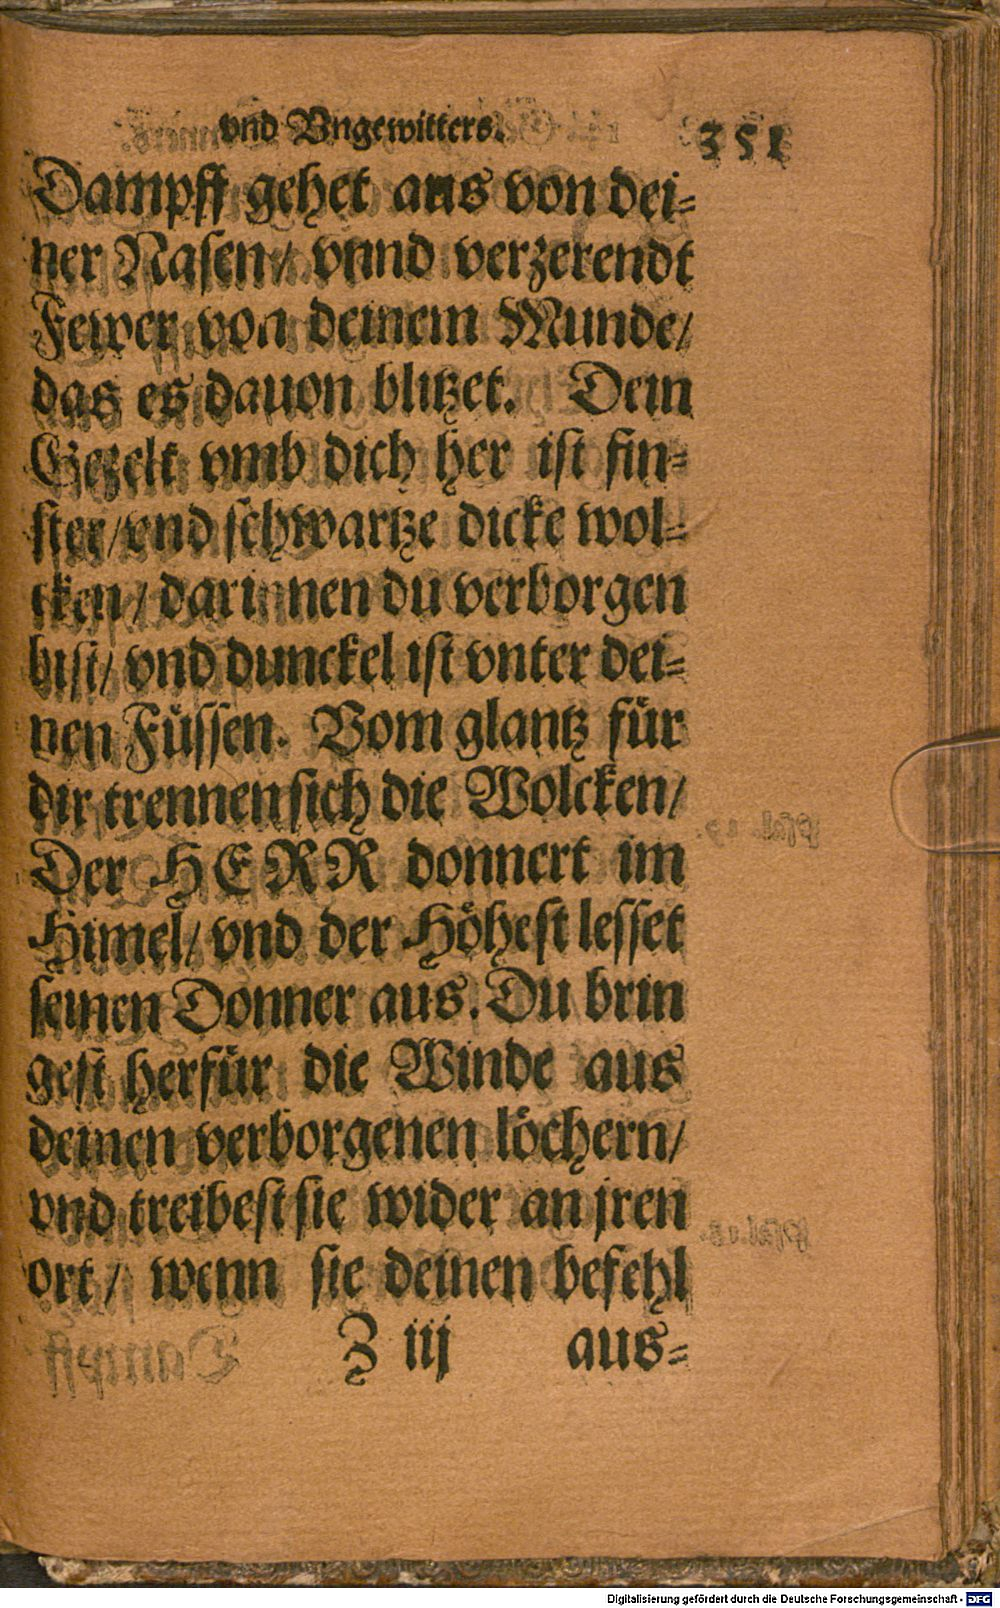 vnd Vngewitters. 351
Dampff gehet aus von dei=
ner Nasen/ vnnd verzerendt
Fewer von deinem Munde/
das es dauon blitzet. Dein
Gezelt vmb dich her ist fin=
ster/vnd schwartze dicke wol=
cken/ darinnen du verborgen
bist/ vnd dunckel ist vnter dei=
nen Füssen. Vom glantz für
dir trennen sich die Wolcken/
Der HERR donnert im
Himel/ vnd der Höhest lesset
seinen Donner aus. Du brin
gest herfür die Winde aus
deinen verborgenen löchern/
vnd treibest sie wider an jren
ort/ wenn sie deinen befehl
Z iij aus=
Digitalisierung gefördert durch die Deutsche Forschungsgemeinschaft - DFG